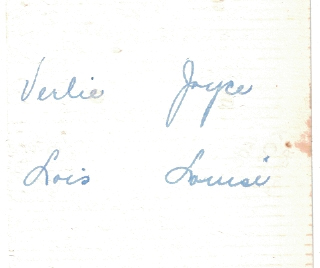 Verlie Joyce
Lois Louise